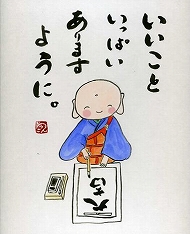 いいこと
いっぱい
あります
ように。
大吉